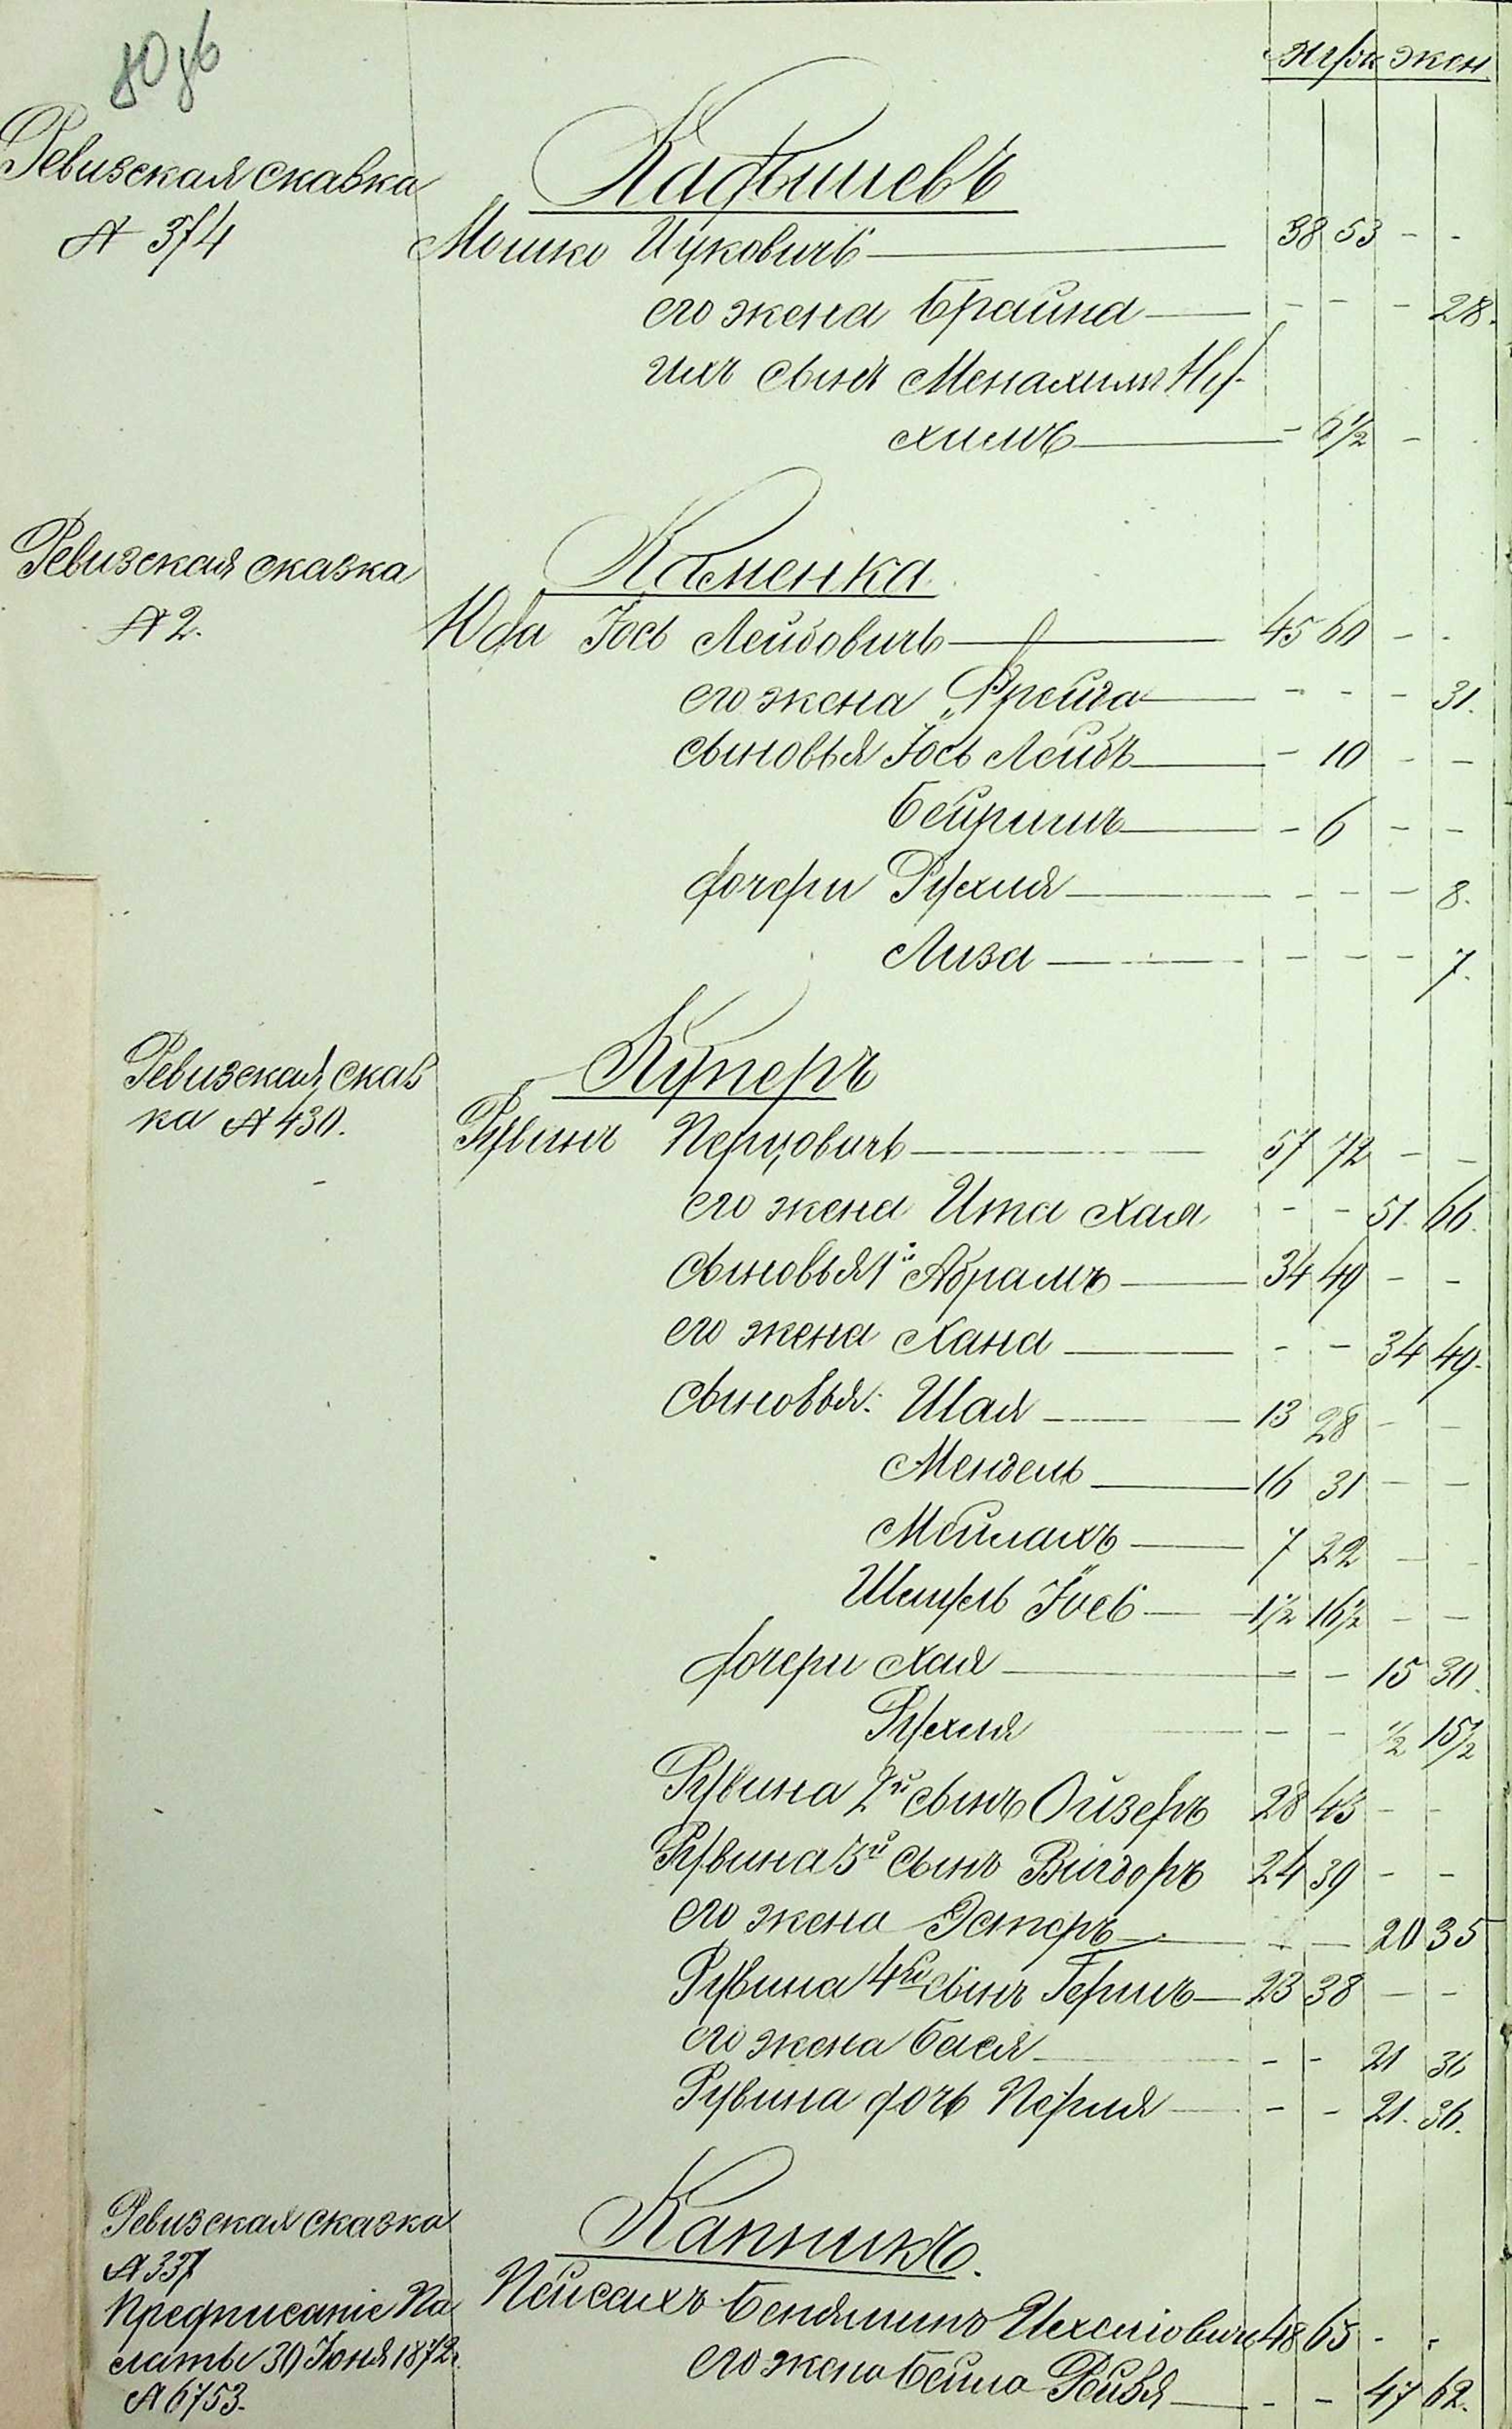 муж жен
Ревизская сказка
№ 374
Кадышевъ
Мошко Ицковичъ — 38 53 - -
его жена Брайна — - - - 28.
ихъ сынъ Менахимъ Ну-
химъ — - 6½ -
Ревизская сказка
№ 2.
Каменка
Юда Іось Лейбовичъ — 45 60 - -
его жена Фрейда — - - - 31.
сыновья Іось Лейбъ — - 10 - -
Бейришъ — - 6 - -
дочери Рухля — - - - 8.
Лиза — - - - 7.
Ревизская сказ
ка № 430.
Куперъ
Рувинъ Перцовичъ — 57 72 - -
его жена Ита Хая - - 51. 66.
сыновья 1й Абрамъ — 34 49 - -
его жена Хана — - - 34 49.
сыновья: Шая — 13 28 - -
Мендель — 16 31 - -
Мейлахъ — 7 22 - -
Іосъ — 1½ 16½ - -
дочери Хая — - - 15 30.
Рухля - - ½ 15½
Рувина 2й сынъ Ойзеръ 28 43 - -
Рувина 3й сынъ Вигдоръ 24 39 - -
его жена Эстеръ — - - 20 35
Рувина 4й сынъ Гершъ — 23 38 - -
его жена Бася — - - 21 36
Рувина дочь Перля — - - 21. 36.
Ревизская сказка
№ 337
Предписаніе Па
латы 30 Іюня 1872г.
№ 6753.
Капникъ.
Пейсахъ Беняминъ 48 63 - -
его жена Бейла Рейзя — - - 47 62.